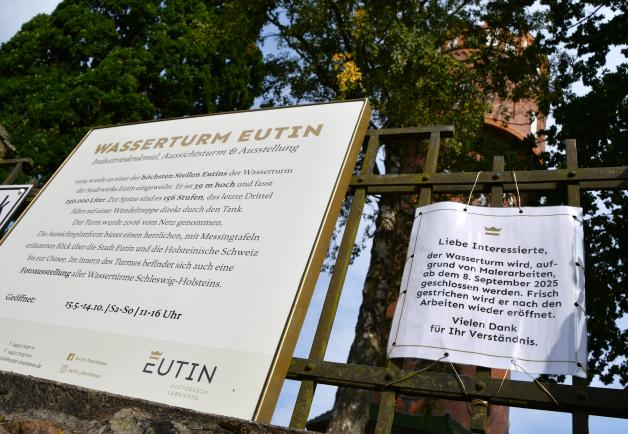 WASSERTURM EUTIN
Industriedenkmal, Aussichtsturm & Ausstellung
1909 wurde an einer der höchsten Stellen Eutins der Wasserturm
der Stadtwerke Eutin eingeweiht. Er ist 39 m hoch und fasst
250.000 Liter. Zur Spitze sind es 156 Stufen, das letzte Drittel
führt auf einer Wendeltreppe direkt durch den Tank.
Der Turm wurde 2006 vom Netz genommen.
Die Aussichtsplattform bietet einen herrlichen, mit Messingtafeln
erläuterten Blick über die Stadt Eutin und die Holsteinische Schweiz
bis zur Ostsee. Im Innern des Turmes befindet sich auch eine
Fotoausstellung aller Wassertürme Schleswig-Holsteins.
Geöffnet:
15.5.-14.10. / Sa-So / 11-16 Uhr
EUTIN
HISTORISCH
LEBENDIG.
Liebe Interessierte,
der Wasserturm wird, auf-
grund von Malerarbeiten,
ab dem 8. September 2025
geschlossen werden. Frisch
gestrichen wird er nach den
Arbeiten wieder eröffnet.
Vielen Dank
für Ihr Verständnis.